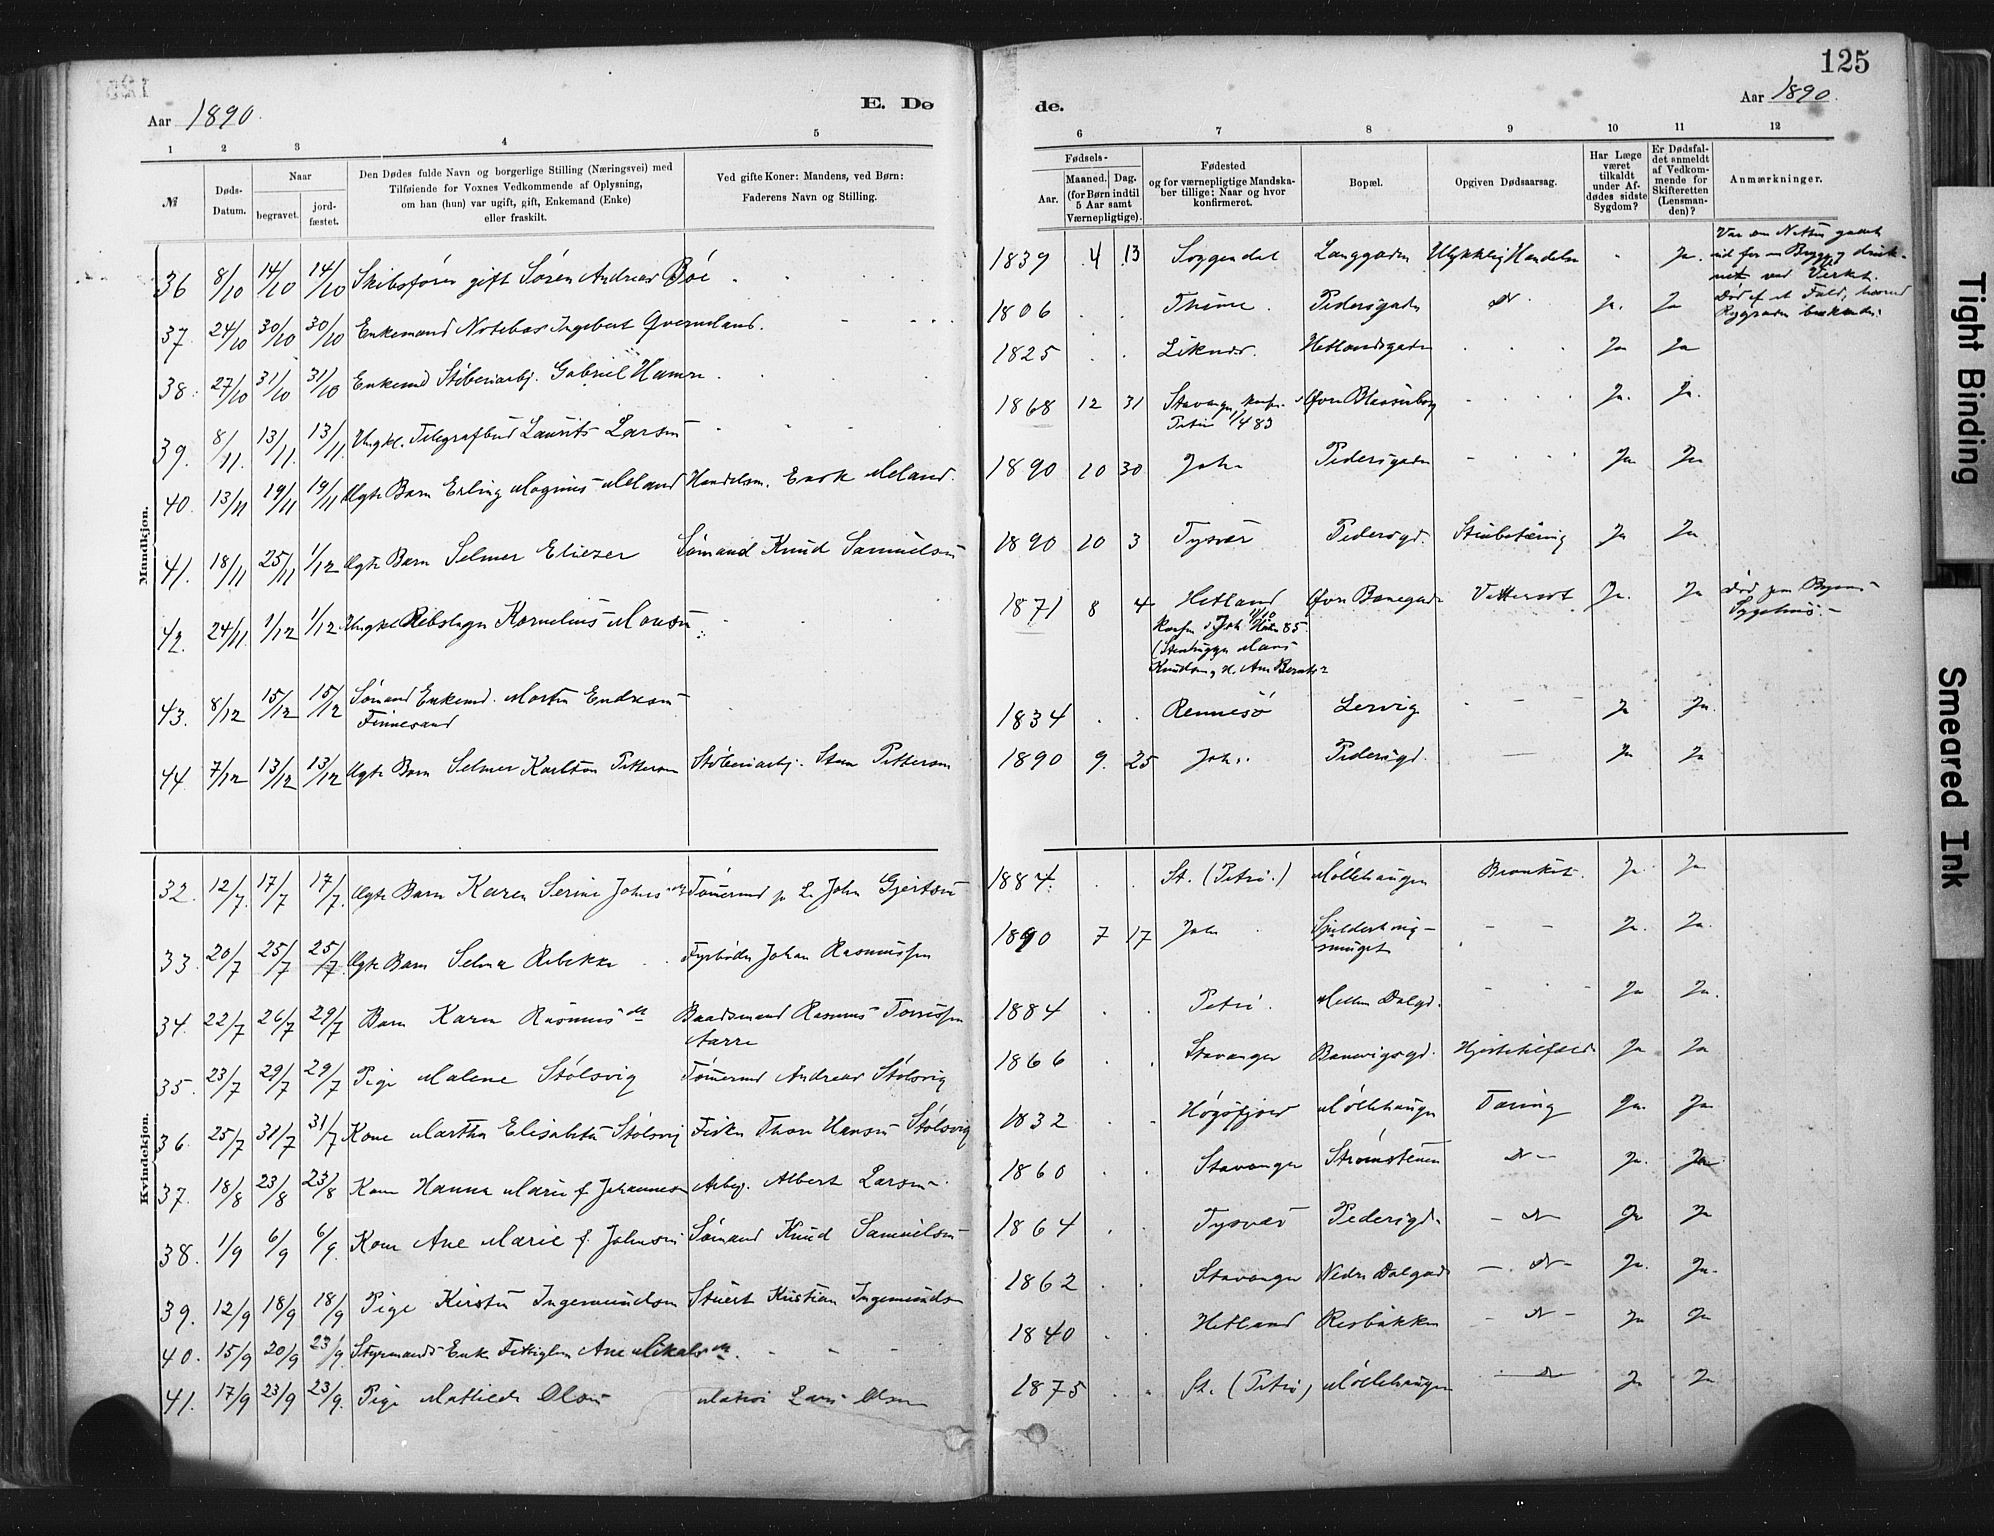 125
Aar 1890.
E. Dø
de.
Aar 1890.
1 2 3 4 5 6 7 8 9 10 11 12
№
Døds-
Datum.
Naar
begravet.
jord-
fæstet.
Den Dødes fulde Navn og borgerlige Stilling (Næringsvei) med
Tilføiende for Voxnes Vedkommende af Oplysning,
om han (hun) var ugift, gift, Enkemand (Enke)
eller fraskilt.
Ved gifte Koner: Mandens, ved Børn:
Faderens Navn og Stilling.
Fødsels-
Aar.
Maaned. Dag.
(for Børn indtil
5 Aar samt
Værnepligtige).
Fødested
og for værnepligtige Mandska-
ber tillige: Naar og hvor
konfirmeret.
Bopæl.
Opgiven Dødsaarsag.
Har Læge
været
tilkaldt
under Af-
dødes sidste
Sygdom?
Er Dødsfal-
det anmeldt
af Vedkom-
mende for
Skifteretten
(Lensman-
den)?
Anmærkninger.
Mandkjøn.
36 8/10 14/10 14/10 Skibsfører gift Sören Andreas Böe 1839 4 13 Soggendal Langgaden Ulykkelig Hændelse Ja.
37. 24/10 30/10 30/10 Enkemand Notebas Ingebret Qverneland. 1806 Thime. Pedersgaden Do Ja. Ja
38. 27/10 31/10 31/10 Enkemd Stöberiarbj. Gabriel Hamre 1825 Liknes. Hetlandsgaden Ja Ja
39. 8/11. 13/11. 13/11. Ungkl. Telegrafbud Laurits Larsen 1868 12 31 Stavanger konf. Øvre Blaasenborg Ja. Ja.
Petri 1/4 83
40. 13/11 19/11 19/11 Ægte Barn Erling Magnus Meland Handelsm. Enok Meland. 1890 10 30 Joh. Pedersgaden Ja Ja
41. 18/11 25/11 1/12 Ægte Barn Selmer Eliezer Sömand Knud Samuelsen 1890 10 3 Tysvær Pedersgd. Ja Ja
42. 24/11. 1/12 1/12. Ungkl Rebslager Kornelius Monsen 1871 8 4 Hetland Øvre Banegade Ja. Ja
43. 8/12 15/12 15/12 Sömand Enkemd. Morten Endresen
Finnesand 1834 Rennesö Lervig Ja Ja.
44. 7/12 13/12 13/12 Ægte Barn Selmer Karlton Pettersen Stöberiarbj. Sten Pettersen 1890 9. 25 Joh. Pedersgd. Ja Ja
Kvindekjøn.
32. 12/7. 17/7 17/7. Ægte Barn Karen Serine Johns dtr Tömermd p. L. John Gjertsen 1884. St. (Petri.) Möllehaugen Bronkit. Ja. Ja
33. 20/7 25/7 25/7. Ægte Barn Selma Rebekka Fyrböder Johan Rasmussen 1890 7 17 Joh Spilderhaug-
smuget Ja. Ja.
34. 22/7 26/7 29/7 Barn Karen Rasmus dtr Baadsmand Rasmus Torrissen
Aarre 1884 Petri. Mellem Dalgd. Ja Ja.
35. 23/7 29/7 29/7 Pige Malene Stölsvig Tömermd Andreas Stölsvig 1866 Stavanger Banevigsgd. Hjertetilfælde Ja Ja
36. 25/7 31/7 31/7 Kone Martha Elisabeth Stölsvig Fisker Thore Hansen Stölsvig 1832 Högsfjord Möllehaugen Tæring Ja. Ja
37. 18/8 23/8 23/8 Kone Hanna Marie f. Johannesen Arbej. Albert Larsen 1860 Stavanger Strömstenen Do Ja. Ja
38. 1/9 6/9 6/9. Kone Ane Marie f. Johnsen Sömand Knud Samuelsen 1864 Tysvær Pedersgd. Do Ja Ja
39. 12/9 18/9 18/9 Pige Kirsten Ingemundsen Stuert Kristian Ingemundsen 1862 Stavanger Nedre Dalgade Do Ja. Ja.
40. 15/9 20/9 23/9. Styrmands Enke Fattiglem Ane Mikals dtr. 1840 Hetland Risbakken Do Ja Ja
41. 17/9 23/9 23/9. Pige Mathilde Olsen Matros Lars Olsen 1875 St. (Petri) Möllehaugen Do Ja Ja
Tight Binding
Smeared Ink